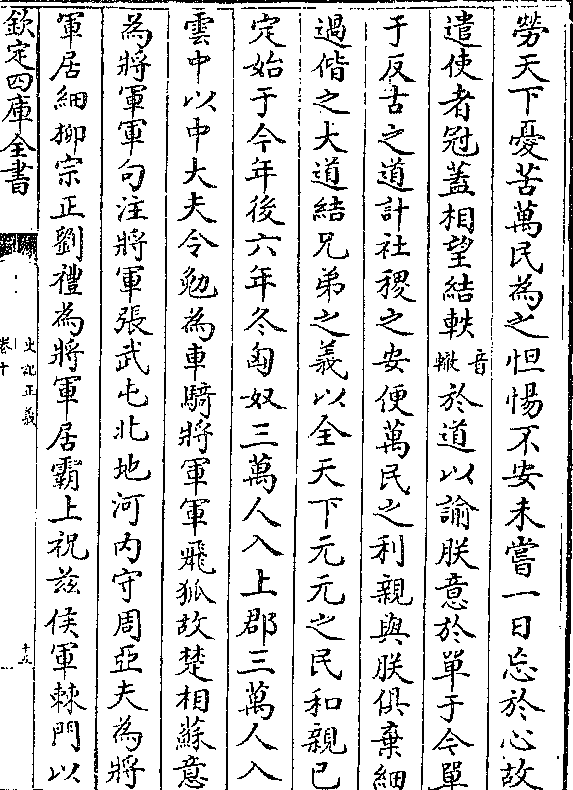 勞天下憂苦萬民為之怛惕不安未嘗一日忘於心故
遣使者冠蓋相望結軼音轍於道以諭朕意於單于今單
于反古之道計社稷之安便萬民之利親與朕俱棄細
過偕之大道結兄弟之義以全天下元元之民和親已
定始于今年後六年冬匈奴三萬人入上郡三萬人入
雲中以中大夫令勉為車騎將軍軍飛狐故楚相蘇意
為將軍軍句注將軍張武屯北地河内守周亞夫為將
軍居細柳宗正劉禮為將軍居霸上祝兹侯軍棘門以
欽定四庫全書
史記正義
卷十
十五